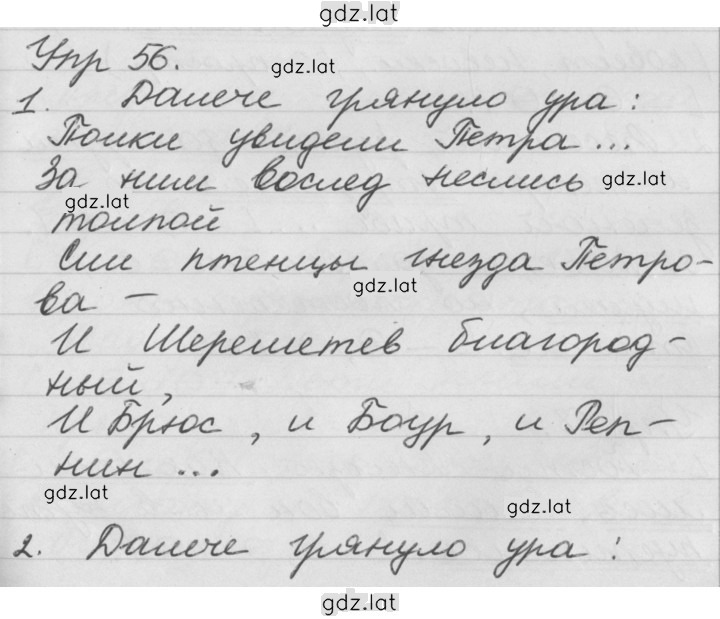 gdz.lat
Упр 56.
gdz.lat
1. Далече грянуло ура:
Полки увидели Петра...
За ним вослед неслись
gdz.lat
gdz.lat
толпой
Сии птенцы гнезда Петро-
gdz.lat
ва –
И Шереметев благород-
ный,
И Брюс, и Боур, и Реп-
нин...
gdz.lat
gdz.lat
2. Далече грянуло ура:
gdz.lat